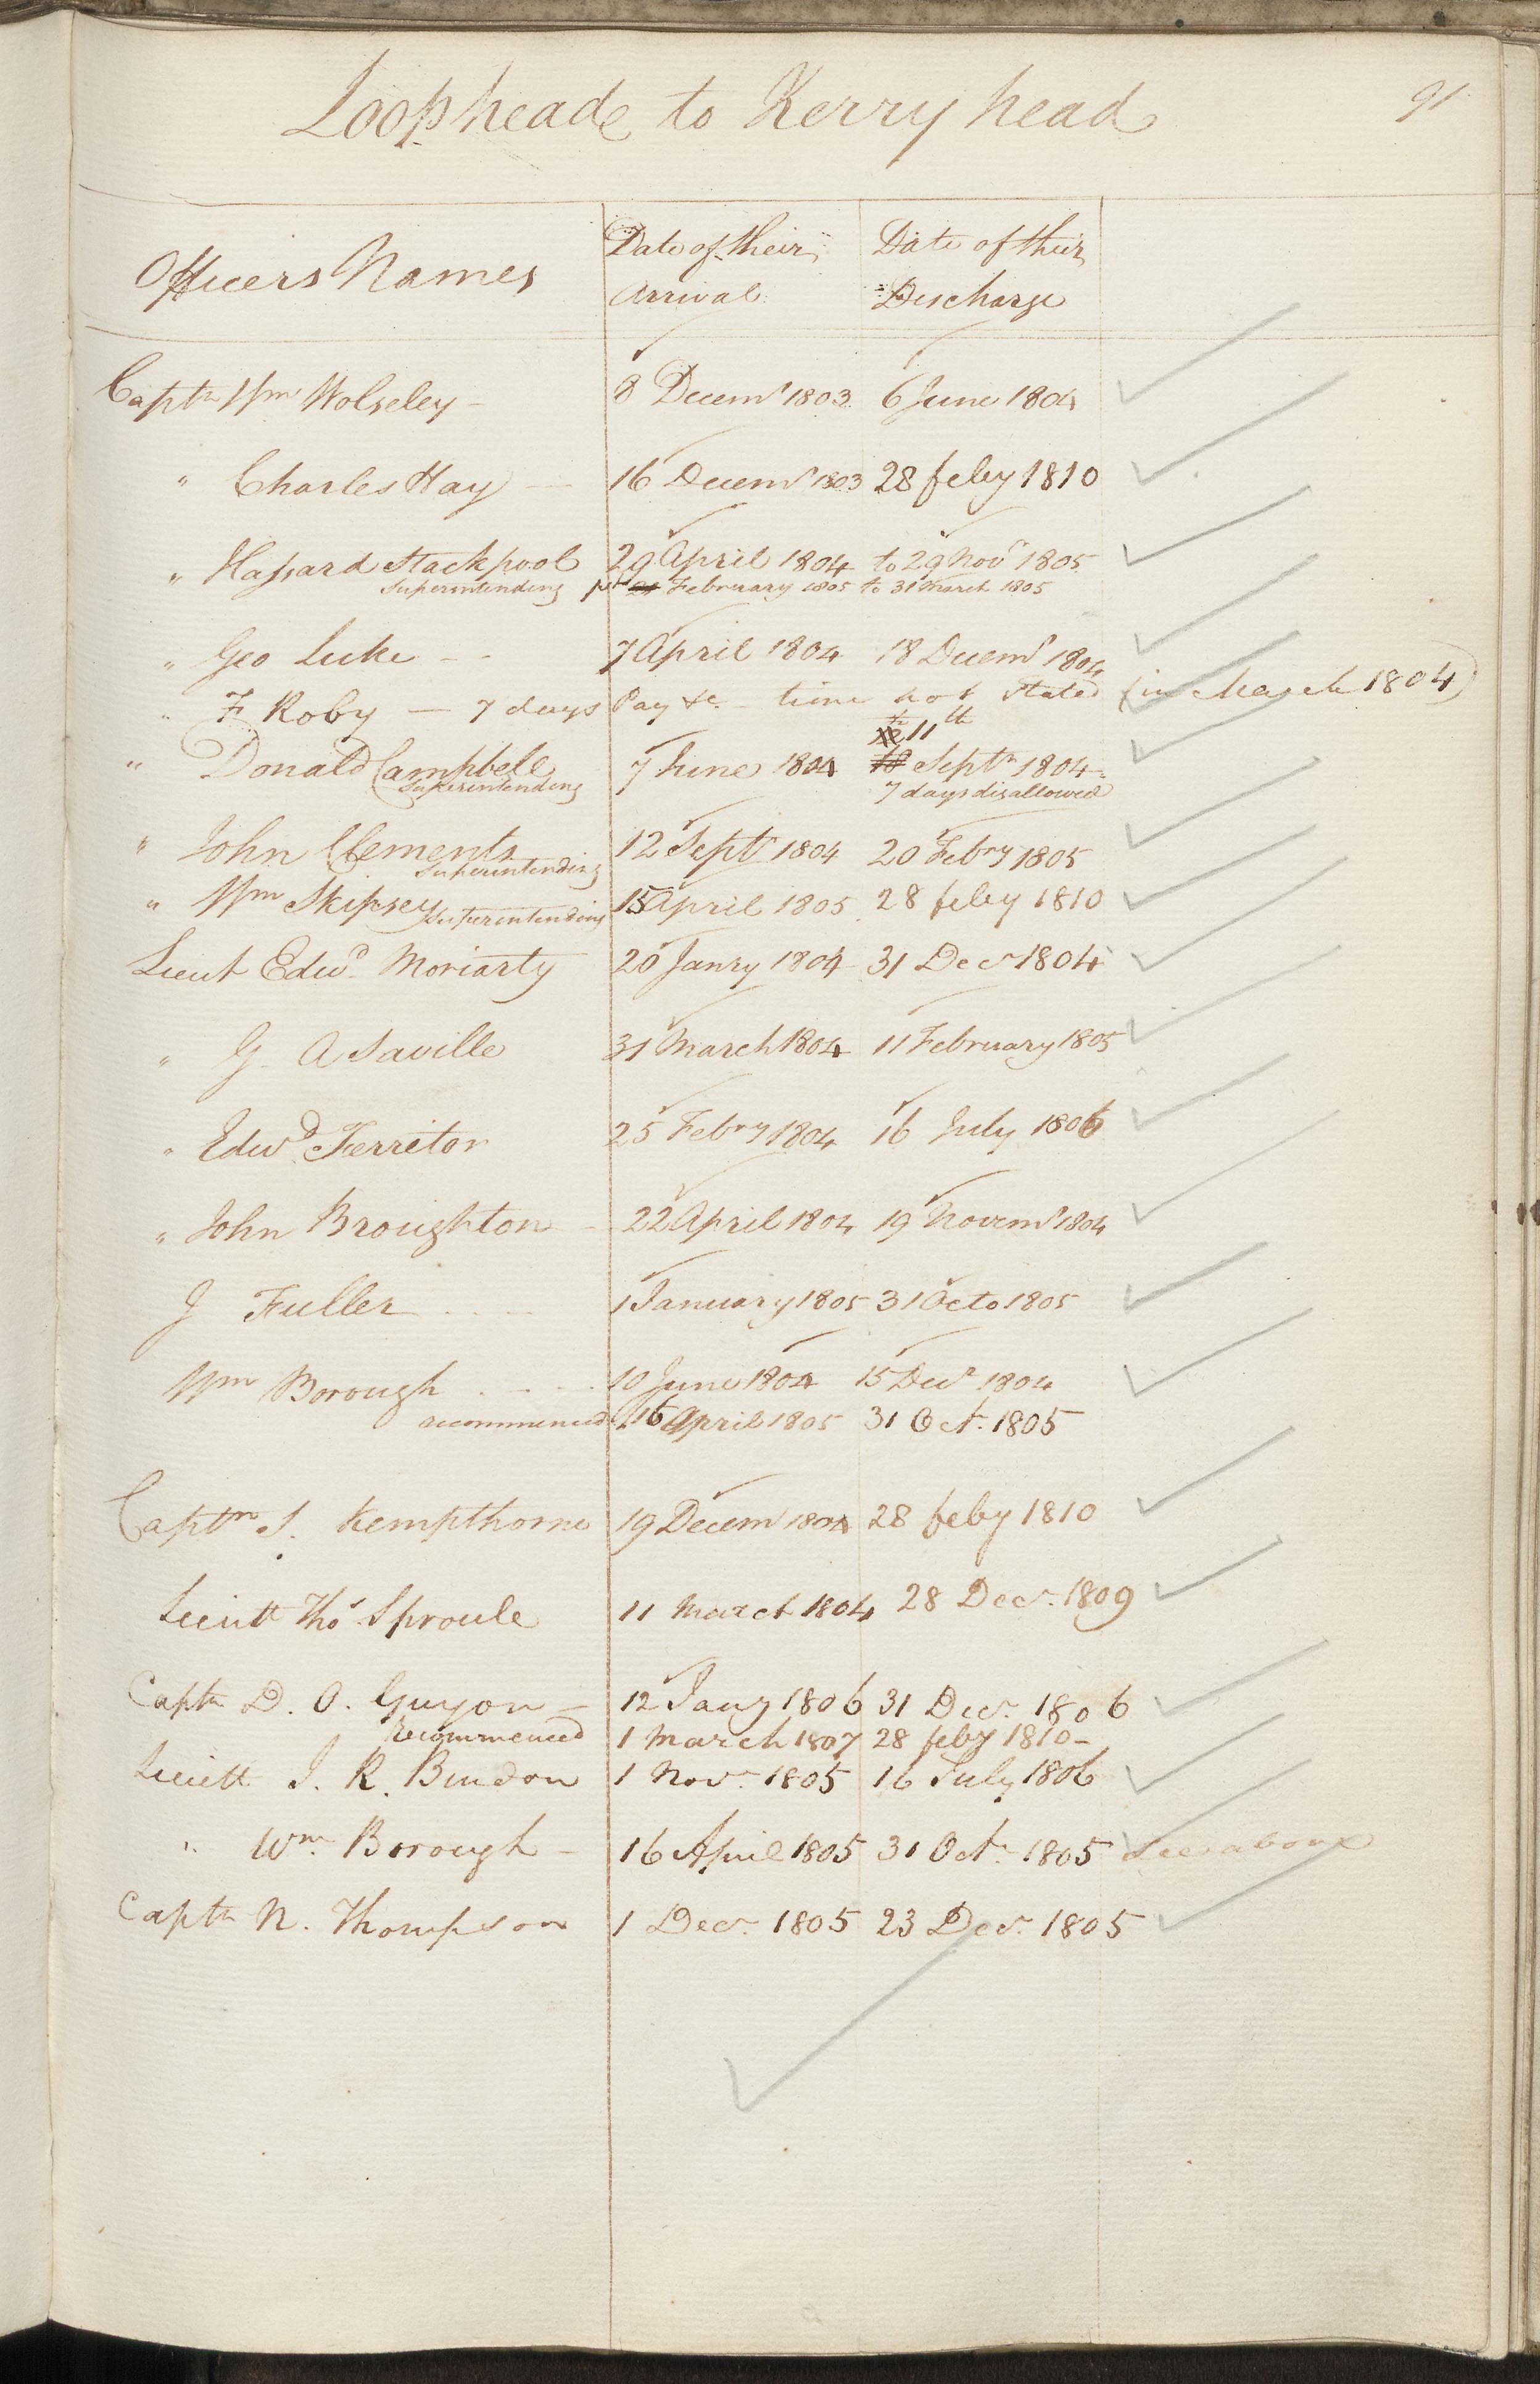 91
Loophead to Kerry head
Officers Names Date of their Arrival Date of their Discharge
Captn Wm Wolseley - 8 Decemr 1803 6 June 1804
" Charles Hay - 16 Decemr 1803 28 feby 1810
" Hassard Stackpool 29 April 1804 to 29 Novr 1805
Superintending February 1805 to 31 March 1805
" Geo Luke - - 7 April 1804 18 Decemr 1804
" F Roby - 7 days Pay &c - time not stated (in March 1804)
11th
" Donald Campbell 7 June 1804 Septr 1804
Superintending 7 days disallowed
" John Clements 12 Septr 1804 20 Febry 1805
Superintending
" Wm Skipsey Superintending 15 April 1805 28 feby 1810
Lieut Edwd Moriarty 20 Janry 1804 31 Decr 1804
" G. A Saville 31 March 1804 11 February 1805
" Edwd Ferriter 25 Febry 1804 16 July 1806
" John Broughton - 22 April 1804 19 Novemr 1804
J Fuller 1 January 1805 31 Octo 1805
Wm Borough 10 June 1804 15 Decr 1804
recommenced 16 April 1805 31 Oct. 1805
Captn S. Kempthorne 19 Decemr 1804 28 feby 1810
Lieutt Thos Sproule 11 March 1804 28 Decr. 1809
Captn D. O. Guyon - 12 Jany 1806 31 Decr. 1806
recommenced 1 March 1807 28 feby 1810-
Lieutt J. R. Bindon 1 Novr 1805 16 July 1806
" Wm. Borough - 16 April 1805 31 Octr 1805 See above
Captn N. Thompson 1 Decr. 1805 23 Decr. 1805